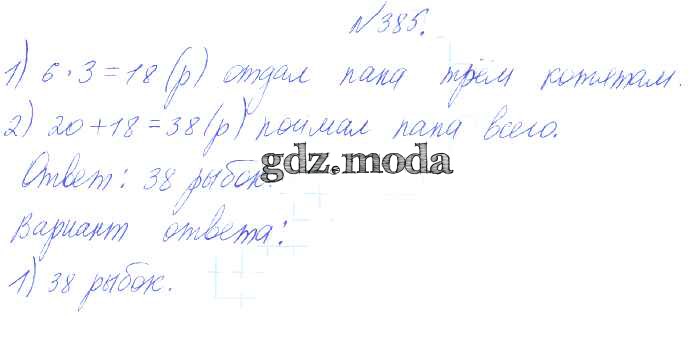 №385.
1) 6·3=18(р) отдал папа трём котятам.
2) 20+18=38(р) поймал папа всего.
gdz.moda
Ответ: 38 рыбок.
Вариант ответа:
1) 38 рыбок.